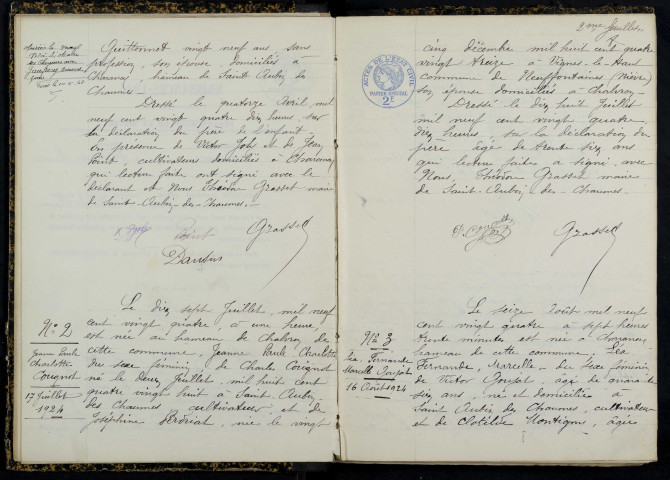 Guittonnet vingt neuf ans, sans
profession, son épouse, domiciliés à
Charancy, hameau de Saint-Aubin des
Chaumes. —
Dressé le quatorze Avril, mil
neuf cent vingt quatre dix heures, sur
la déclaration du père de l'enfant
En présence de Victor et de Jean
Point, cultivateurs domiciliés à Charancy
qui lecture faite ont signé avec le
déclarant et Nous Grasset maire
de Saint-Aubin-des-Chaumes. —
Point Grasset
No 2
Jeanne Paule
Charlotte
17 Juillet
1924
Le dix sept Juillet, mil neuf
cent vingt quatre, à une heure,
est née au hameau de Chabroy de
cette commune, Jeanne Paule Charlotte
du sexe féminin, de Charles
né le deux Juillet, mil huit cent
quatre vingt huit à Saint-Aubin-
des Chaumes cultivateur et de
Joséphine née le vingt
2me feuillet
ACTES DE L'ETAT CIVIL
PAPIER SPECIAL
2E
cinq décembre mil huit cent quatre
vingt treize à Vignes-le-Haut
commune de Neuffontaines (Nièvre)
son épouse domiciliés à Chabroy —
Dressé le dix huit Juillet
mil neuf cent vingt quatre,
dix heures, sur la déclaration du
père âgé de trente six ans
qui lecture faite a signé avec
Nous, Grasset maire
de Saint-Aubin-des-Chaumes. —
Grasset
No 3
Léa Fernande
Marcelle
16 Août 1924
Le seize Août mil neuf
cent vingt quatre à sept heures
trente minutes est née à Charancy
hameau de cette commune, Léa
Fernande, Marcelle du sexe féminin
de Victor âgé de quarante
six ans, né et domicilié à
Saint Aubin des Chaumes, cultivateur
et de Clotilde Montigny, âgée